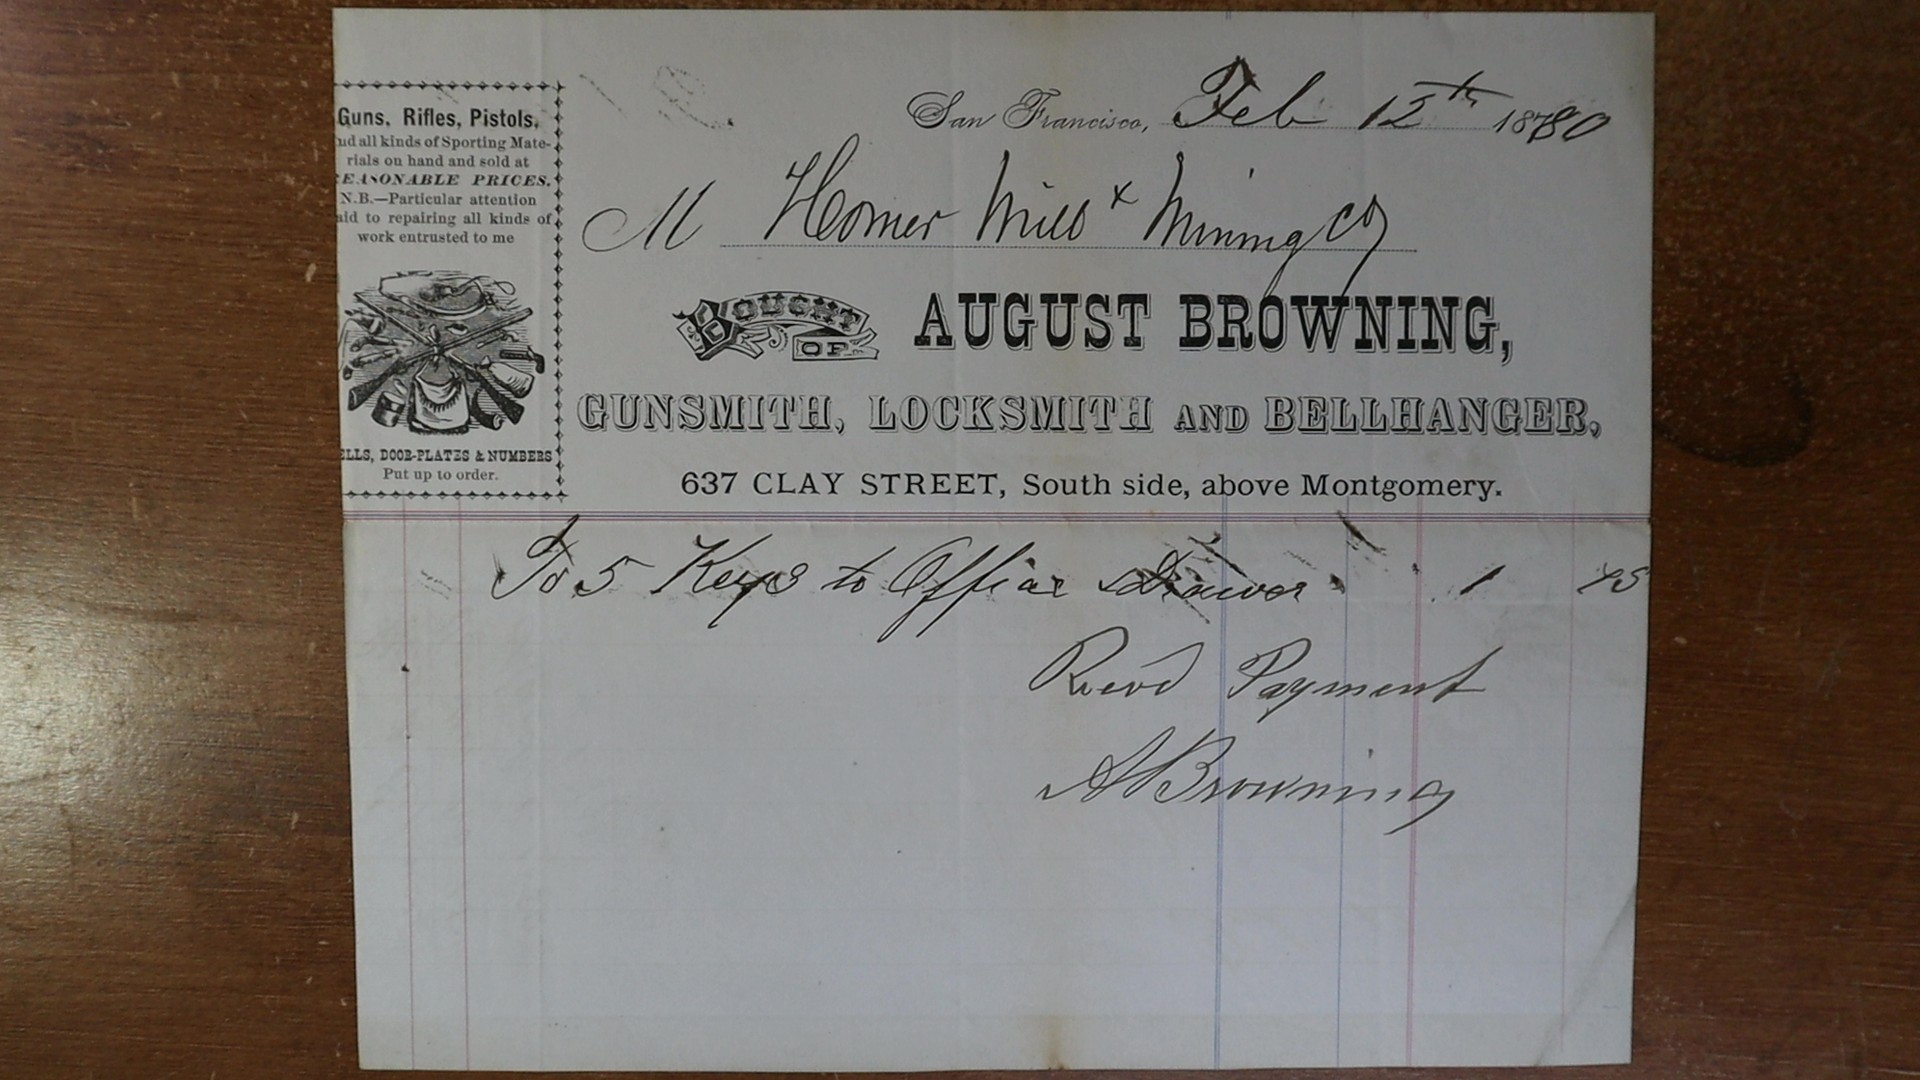 Guns, Rifles, Pistols,
nd all kinds of Sporting Mate-
rials on hand and sold at
EASONABLE PRICES.
N.B.—Particular attention
aid to repairing all kinds of
work entrusted to me
ELLS, DOOR-PLATES & NUMBERS
Put up to order.
San Francisco, Feb 12th 1880
M Homer Mill & Mining Co
BOUGHT OF AUGUST BROWNING,
GUNSMITH, LOCKSMITH AND BELLHANGER,
637 CLAY STREET, South side, above Montgomery.
To 5 Keys to Office Drawer 1 75
Recvd Payment
A Browning